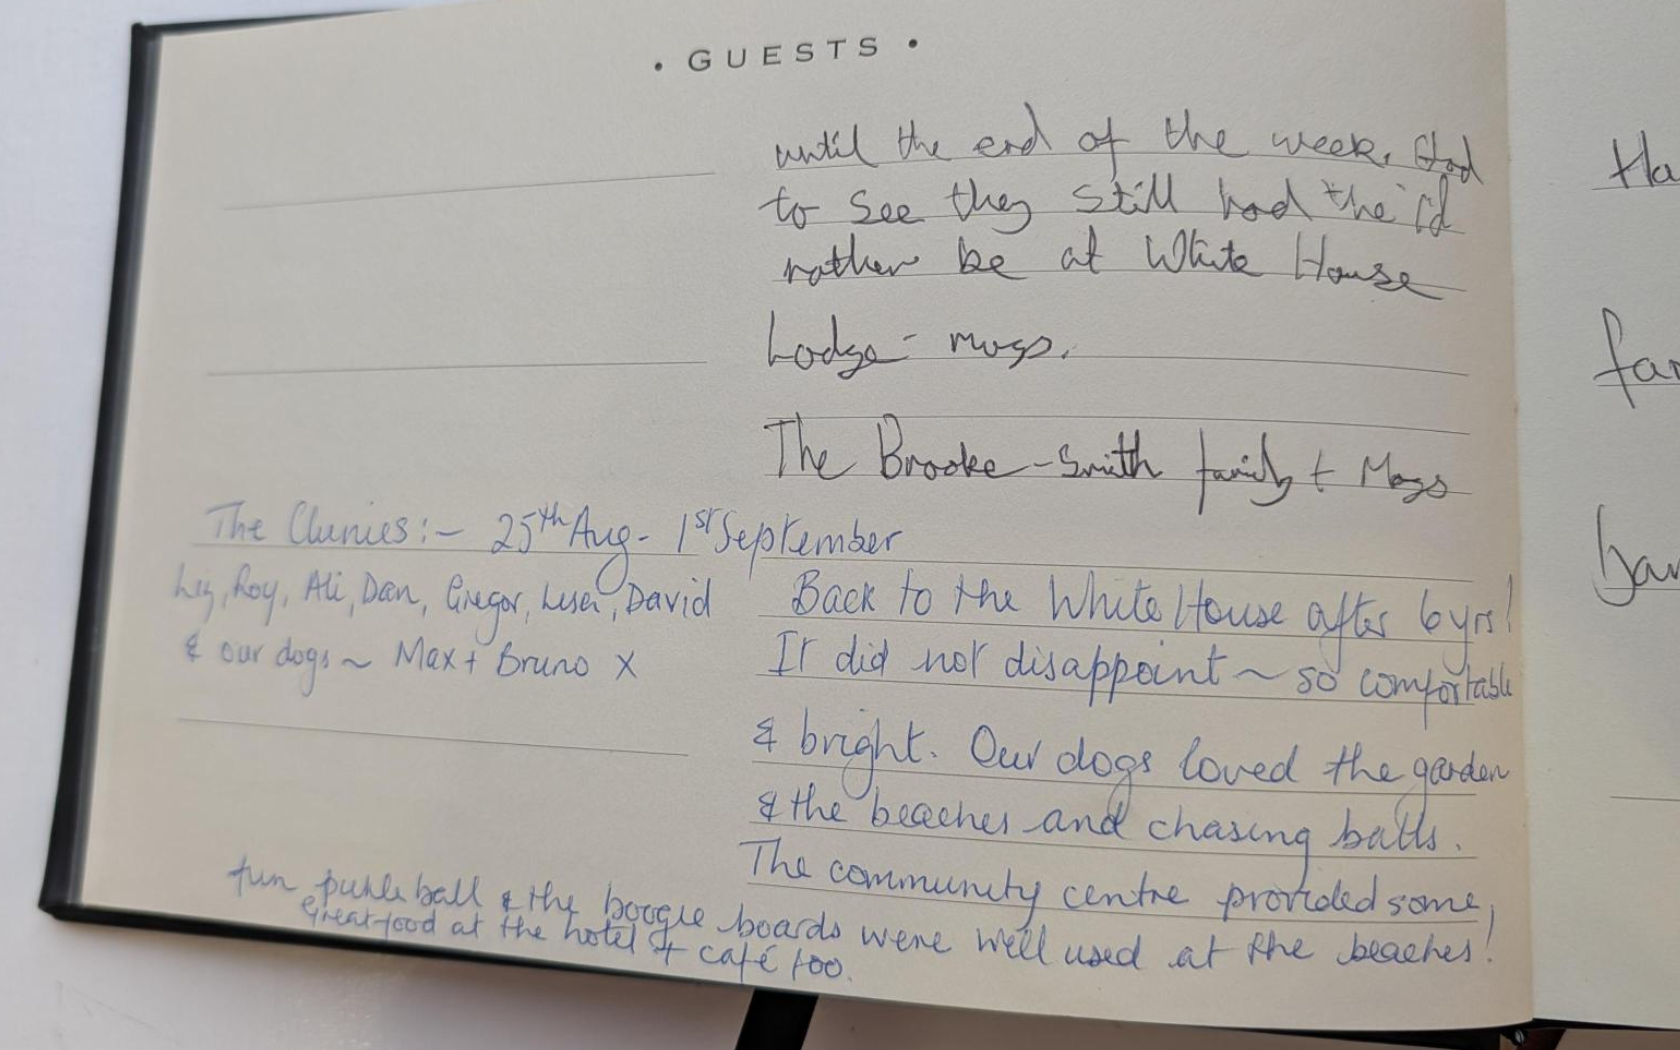 • GUESTS •
until the end of the week. Glad
to see they still had the 'I'd
rather be at White House
Lodge' - mugs.
The Brooke-Smith family + Mags
The Clunies :- 25th Aug - 1st September
Liz, Roy, Ali, Dan, Gregor, Lesa, David
& our dogs ~ Max + Bruno X
Back to the White House after 6yrs!
It did not disappoint ~ so comfortable
& bright. Our dogs loved the garden
& the beaches and chasing balls.
The community centre provided some
fun pickleball & the boogie boards were well used at the beaches!
Great food at the hotel + café too.
Ha
far